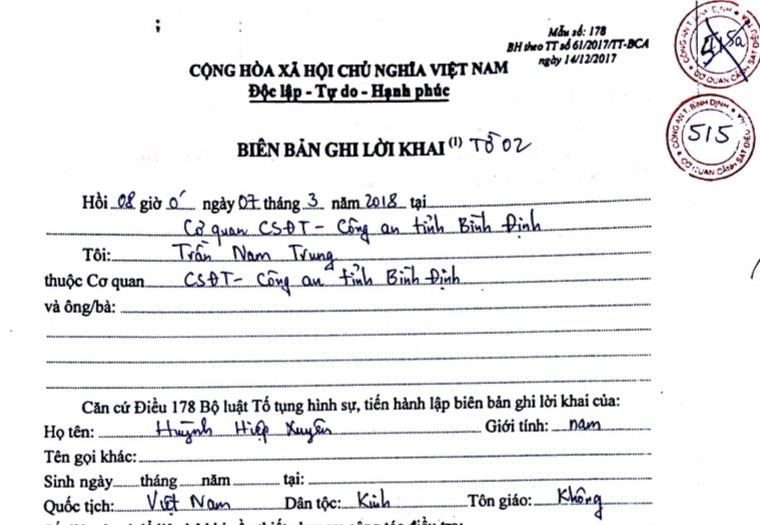 Mẫu số: 178
BH theo TT số 61/2017/TT-BCA
ngày 14/12/2017
CÔNG AN T. BÌNH ĐỊNH
CƠ QUAN CẢNH SÁT ĐIỀU
CỘNG HÒA XÃ HỘI CHỦ NGHĨA VIỆT NAM
Độc lập - Tự do - Hạnh phúc
CÔNG AN T. BÌNH ĐỊNH
515
CƠ QUAN CẢNH SÁT ĐIỀU
BIÊN BẢN GHI LỜI KHAI (1) Tờ 02
Hồi 08 giờ 0' ngày 07 tháng 3 năm 2018 tại
Cơ quan CSĐT - Công an tỉnh Bình Định
Tôi: Trần Nam Trung
thuộc Cơ quan CSĐT - Công an tỉnh Bình Định
và ông/bà:
Căn cứ Điều 178 Bộ luật Tố tụng hình sự, tiến hành lập biên bản ghi lời khai của:
Họ tên: Huỳnh Hiệp Xuyên Giới tính: nam
Tên gọi khác:
Sinh ngày tháng năm tại:
Quốc tịch: Việt Nam Dân tộc: Kinh Tôn giáo: Không